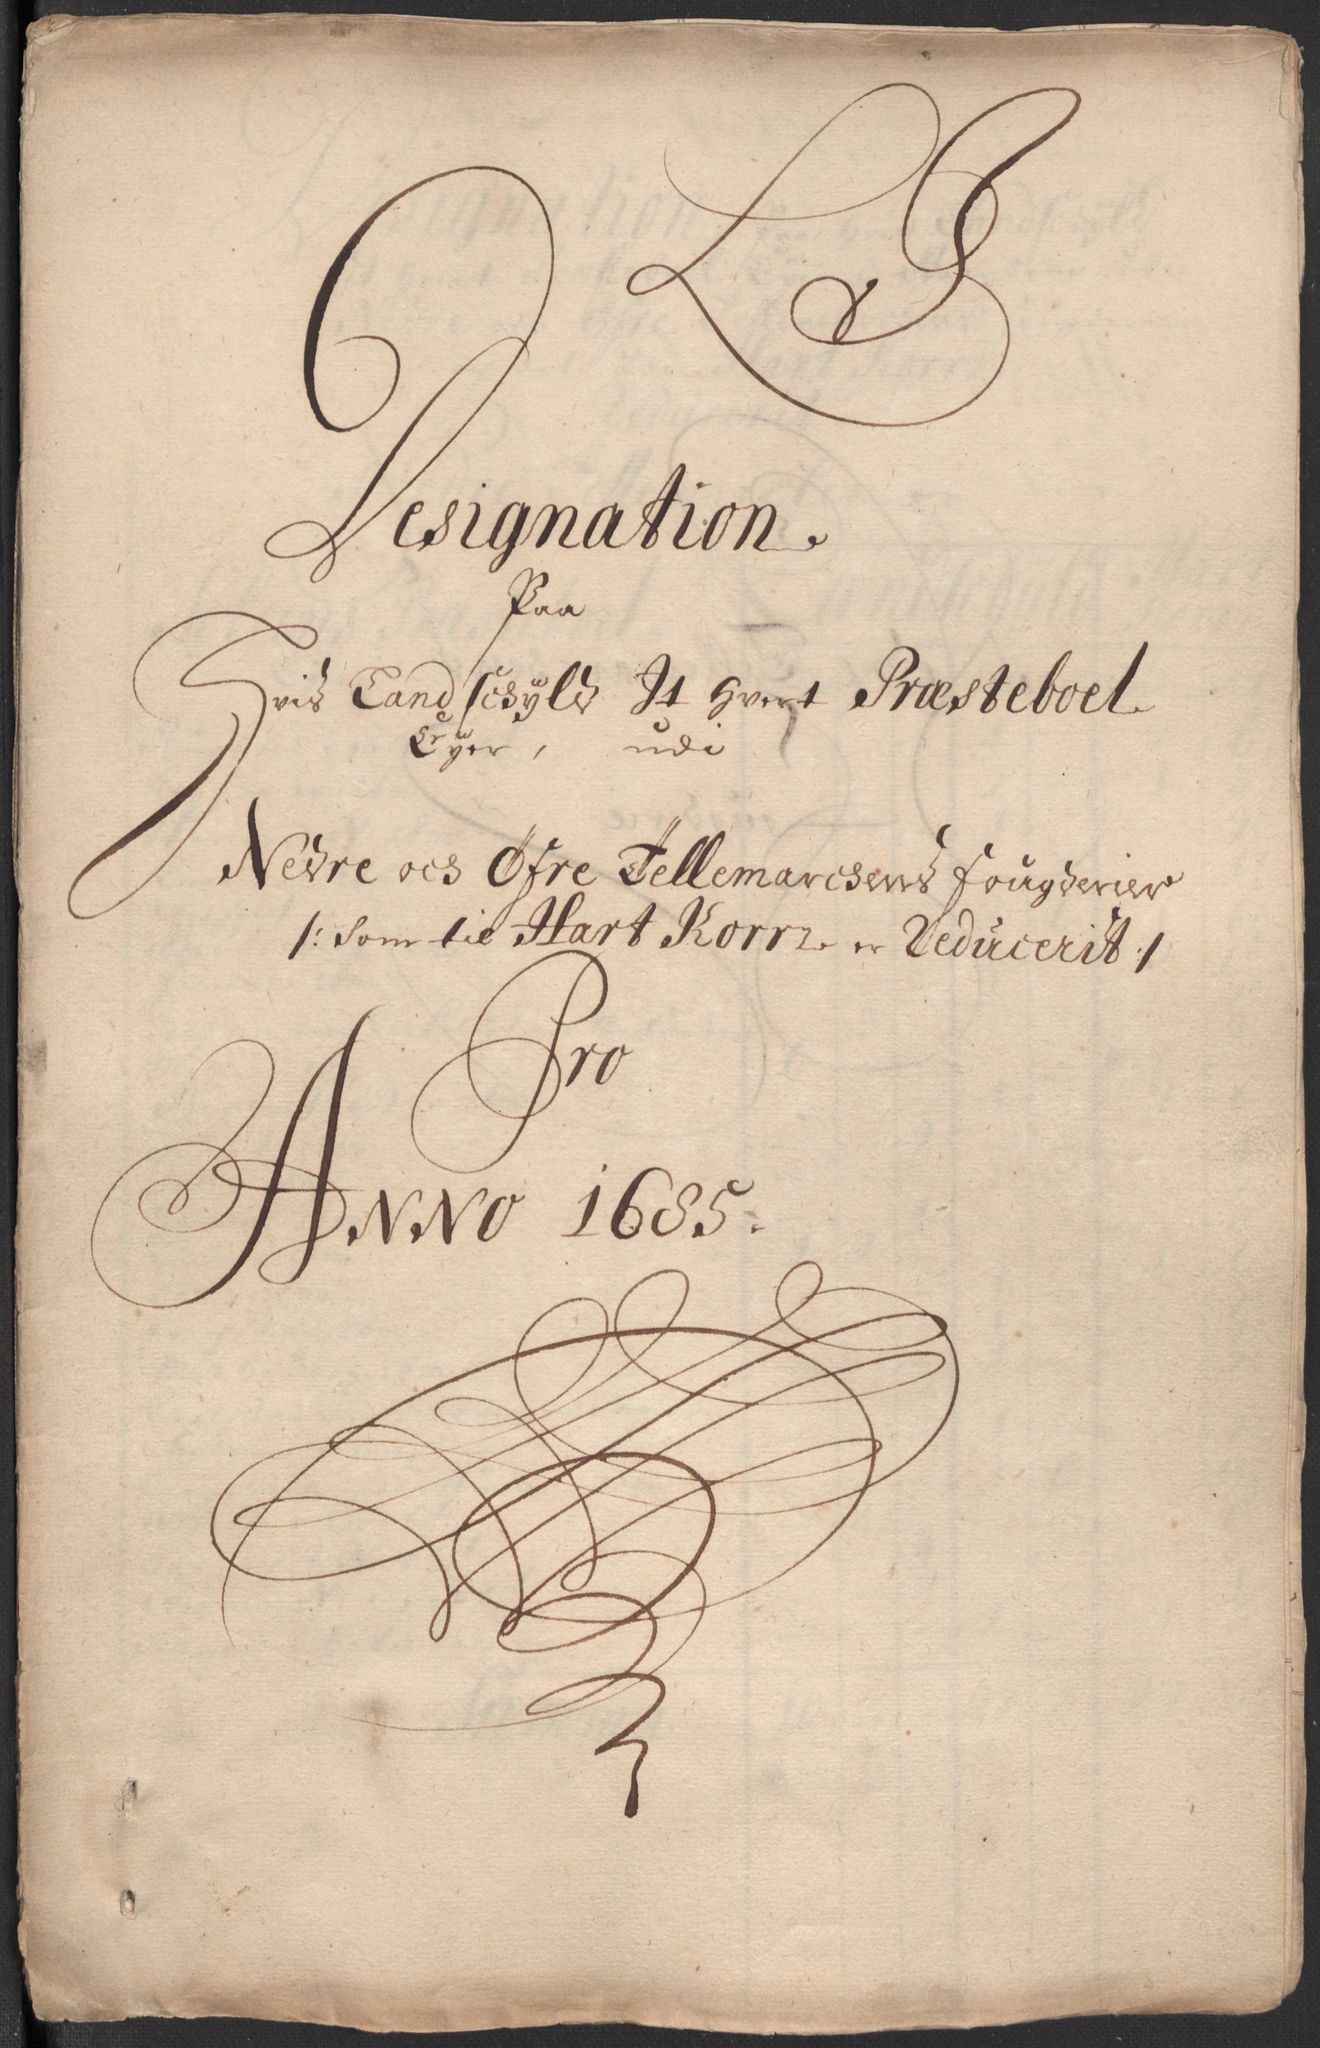 LS
Designation
Paa
Hvis Landschyld It hvert Præsteboel
Eyer, udi
Nedre och Øfre Tellemarchens fougderier
/: Som til Hart Korn er Reducerit :/
Pro
ANNO 1685.